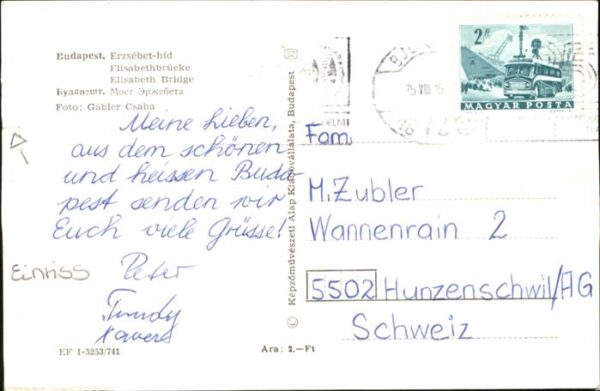 Budapest. Erzsébet-híd
Elisabethbrücke
Elisabeth Bridge
Будапешт. Мост Эржебета
Foto: Gábler Csaba
Meine Lieben,
aus dem schönen
und heissen Buda-
pest senden wir
Euch viele Grüsse!
Peter
Einriss
EF I-5253/741
Ara: 2.—Ft
© Képzőművészeti Alap Kiadóvállalata, Budapest
2 Ft
MAGYAR POSTA
75 VIII 15
Fam.
M. Zubler
Wannenrain 2
5502 Hunzenschwil/AG
Schweiz